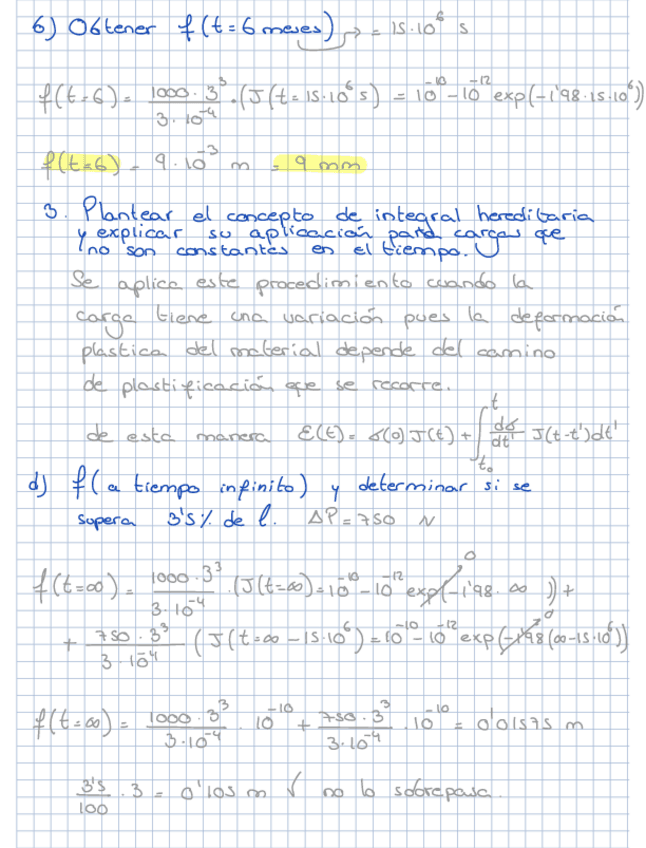 6) Obtener f(t=6 meses) → = 15·10⁶ s
f(t=6) = 1000·3³ / 3·10⁻⁴ · (J(t=15·10⁶ s) = 10⁻¹⁰ - 10⁻¹² exp(-1'98·15·10⁶))
f(t=6) = 9·10⁻³ m = 9 mm
3. Plantear el concepto de integral hereditaria
y explicar su aplicación para cargas que
no son constantes en el tiempo.
Se aplica este procedimiento cuando la
carga tiene una variación pues la deformación
plastica del material depende del camino
de plastificación que se recorre.
de esta manera ε(t) = σ(0) J(t) + ∫ₜ₀ᵗ dσ/dt' J(t-t')dt'
d) f(a tiempo infinito) y determinar si se
supera 3'5% de l. ΔP = 750 N
f(t=∞) = 1000·3³ / 3·10⁻⁴ · (J(t=∞) = 10⁻¹⁰ - 10⁻¹² exp(-1'98·∞)) + 0
+ 750·3³ / 3·10⁻⁴ (J(t=∞-15·10⁶) = 10⁻¹⁰ - 10⁻¹² exp(-1'98(∞-15·10⁶)) 0
f(t=∞) = 1000·3³ / 3·10⁻⁴ · 10⁻¹⁰ + 750·3³ / 3·10⁻⁴ · 10⁻¹⁰ = 0'01575 m
3'5/100 · 3 = 0'105 m ✓ no lo sobrepasa.